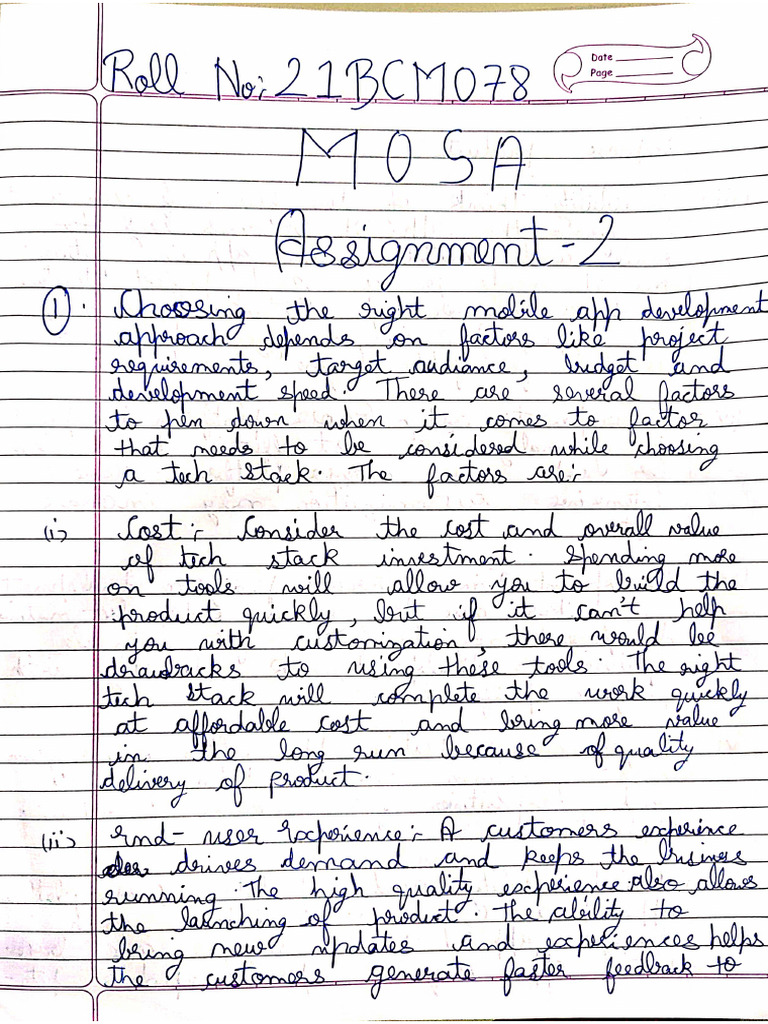 Roll No: 21BCM078
Date
Page
MOSA
Assignment-2
1. Choosing the right mobile app development
approach depends on factors like project
requirements, target audiance, budget and
development speed. There are several factors
to pen down when it comes to factor
that needs to be considered while choosing
a tech stack. The factors are:-
(i) Cost:- Consider the cost and overall value
of tech stack investment. Spending more
on tools will allow you to build the
product quickly, but if it can't help
you with customization, there would be
drawbacks to using these tools. The right
tech stack will complete the work quickly
at affordable cost and bring more value
in the long run because of quality
delivery of product.
(ii) End-user Experience:- A customers experince
drives demand and keeps the business
running. The high quality experience also allows
the launching of product. The ability to
bring new updates and experiences helps
the customers generate faster feedback to